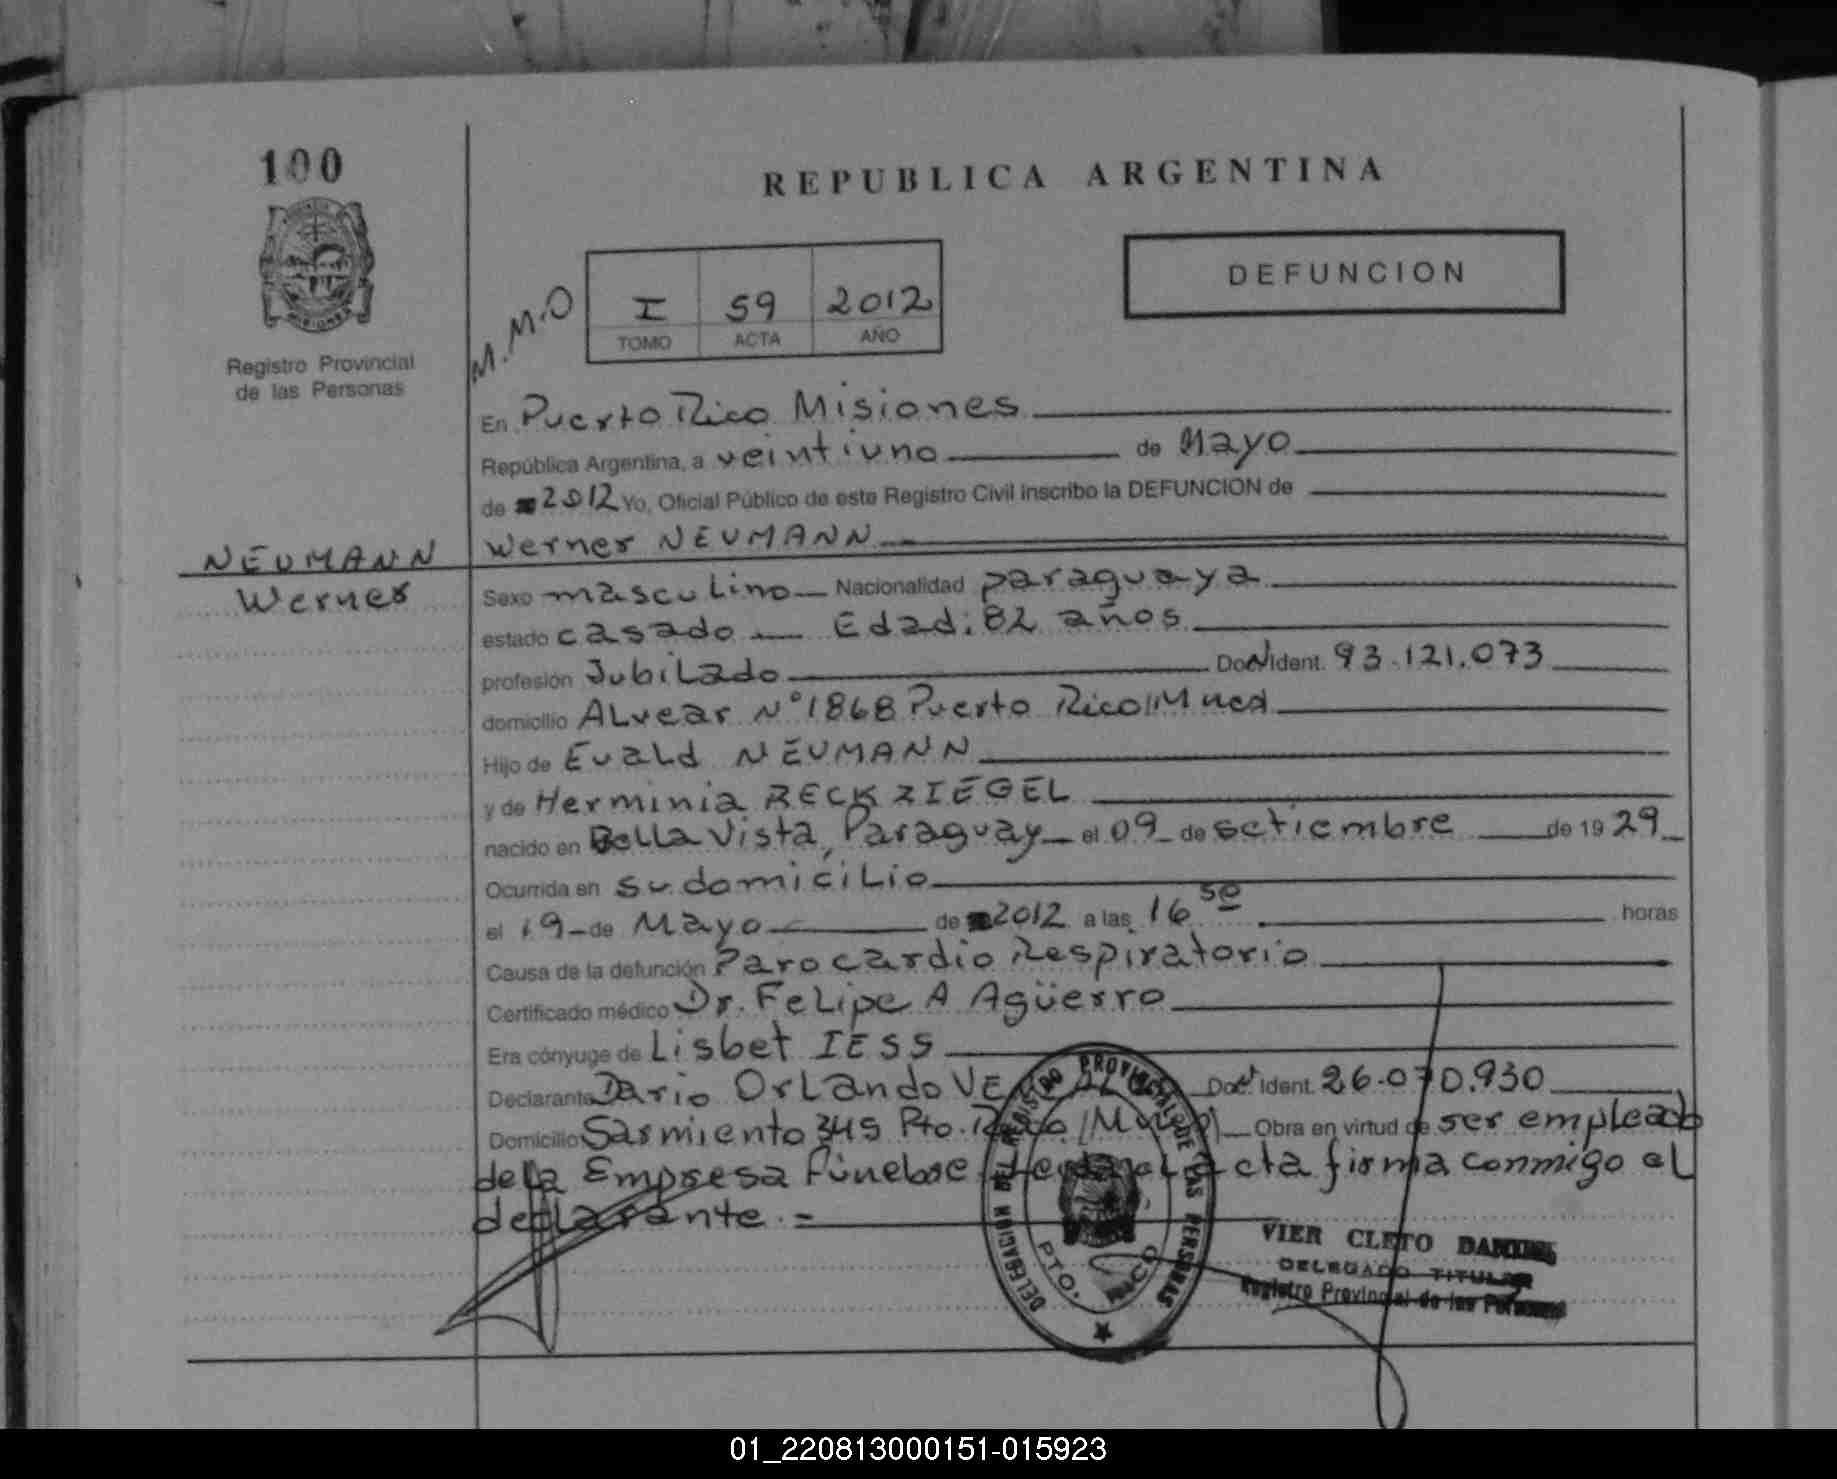 100
REPUBLICA ARGENTINA
DEFUNCION
M.M.O
I 59 2012
TOMO ACTA AÑO
Registro Provincial
de las Personas
En Puerto Rico Misiones
República Argentina, a veintiuno de Mayo
de 2012 Yo, Oficial Público de este Registro Civil inscribo la DEFUNCION de
Werner NEUMANN
NEUMANN
Werner
Sexo masculino Nacionalidad paraguaya
estado casado Edad: 82 años
profesión Jubilado Doc Ident. 93.121.073
domicilio Alvear N° 1868 Puerto Rico
Hijo de Evald NEUMANN
y de Herminia RECKZIEGEL
nacido en Bella Vista, Paraguay el 09 de setiembre de 1929
Ocurrida en su domicilio
el 19 de Mayo de 2012 a las 16 50 horas
Causa de la defunción Paro cardio Respiratorio
Certificado médico Dr. Felipe A Agüerro
Era cónyuge de Lisbet IESS
Declarante Dario Orlando Doc. Ident. 26.070.930
Domicilio Sarmiento 345 Pto. Rico Obra en virtud de ser empleado
de la Empresa Fúnebre Leida el acta firma conmigo el
declarante.=
DELEGACION DEL REGISTRO PROVINCIAL DE LAS PERSONAS
PTO. RICO
VIER CLETO DANIEL
DELEGADO TITULAR
Registro Provincial de las Personas
01_220813000151-015923